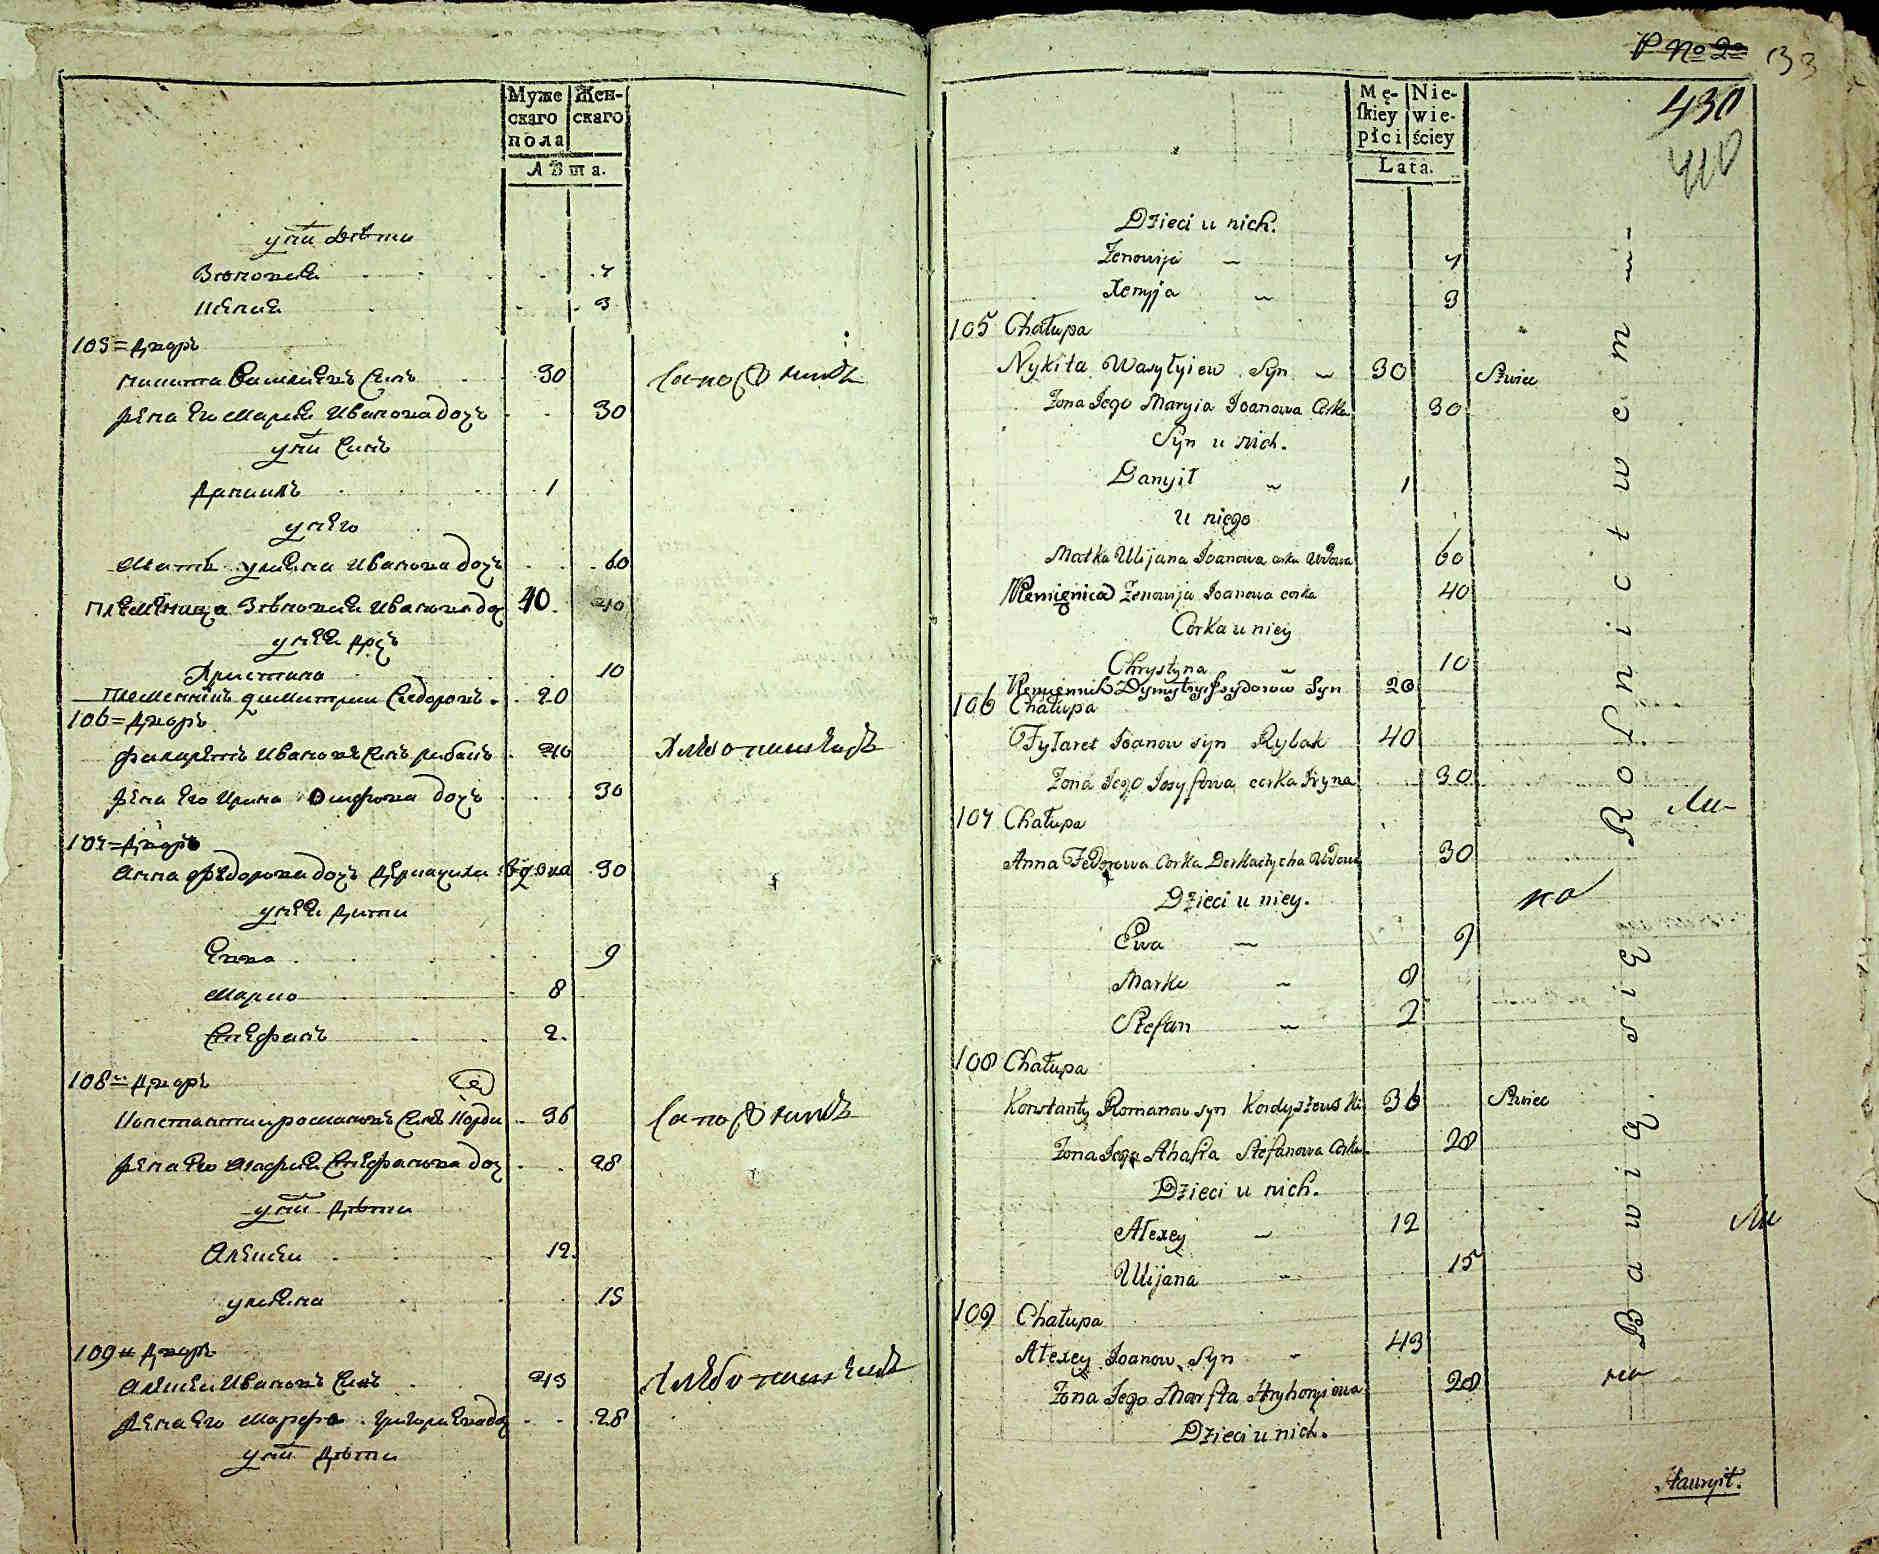 Муже
скаго
пола
Жен-
скаго
Лѣта.
у них дѣти
Зѣновия 7
Ксения 3
105 = Дворъ
Никита Василиевъ Синъ 30
Жена Его Мария Иванова дочъ 30
у них Синъ
Даниилъ 1
у него
Мать улияна Иванова дочъ 60
племѣница Зѣновия Иванова до 40 40
у нея дочъ
Христина 10
племенникъ димитрии Сидоровъ 20
106 = Дворъ
Филаретъ Ивановъ Синъ рибакъ 40
Жена Его Ирина Осифова дочъ 30
107 = Дворъ
Анна Федорова дочъ вдова 30
у нея дити
Евва 9
Марко 8
Стефанъ 2
108 = Дворъ
Константи романовъ Синъ Корди 36
Жена Его Агафия Стефанова доч 28
у них дѣти
Алексеи 12
улияна 15
109 = Дворъ
Алексеи Ивановъ Синъ 43
Жена Его Марфа Григориева до 28
у них дѣти
Сапожникъ
Хлебопашецъ
Сапожникъ
Хлебопашецъ
P No 20 33
430
Mę-
skiey
płci
Nie-
wie-
ściey
Lata.
Dzieci u nich.
Zenowija 7
Xenyja 3
105 Chałupa
Nykita Wasyłyiew Syn 30 Szwiec
Zona Jego Maryia Joanowa Corka 30
Syn u nich.
Danyił 1
u niego
Matka Ulijana Joanowa corka Wdowa 60
Plemięnica Zenowija Joanowa corka 40
Corka u niey
Chrystyna 10
Plemiennik Dymytry Jsydorow Syn 20
106 Chałupa
Fyłaret Joanow syn Rybak 40
Zona Jego Josyfowa corka Iryna 30
107 Chałupa
Anna Fedorowa Corka Derkaczycha Wdowa 30
Dzieci u niey.
Ewa 9
Marko 8
Stefan 2
108 Chałupa
Konstanty Romanow syn Kordyszewski 36 Szwiec
Zona Jego Ahafia Stefanowa Corka 28
Dzieci u nich.
Alexey 12
Ulijana 15
109 Chałupa
Alexey Joanow Syn 43
Zona Jego Marfta Hryhoryiowa 28
Dzieci u nich.
Bawią się Rolnictwem
Hauryił.